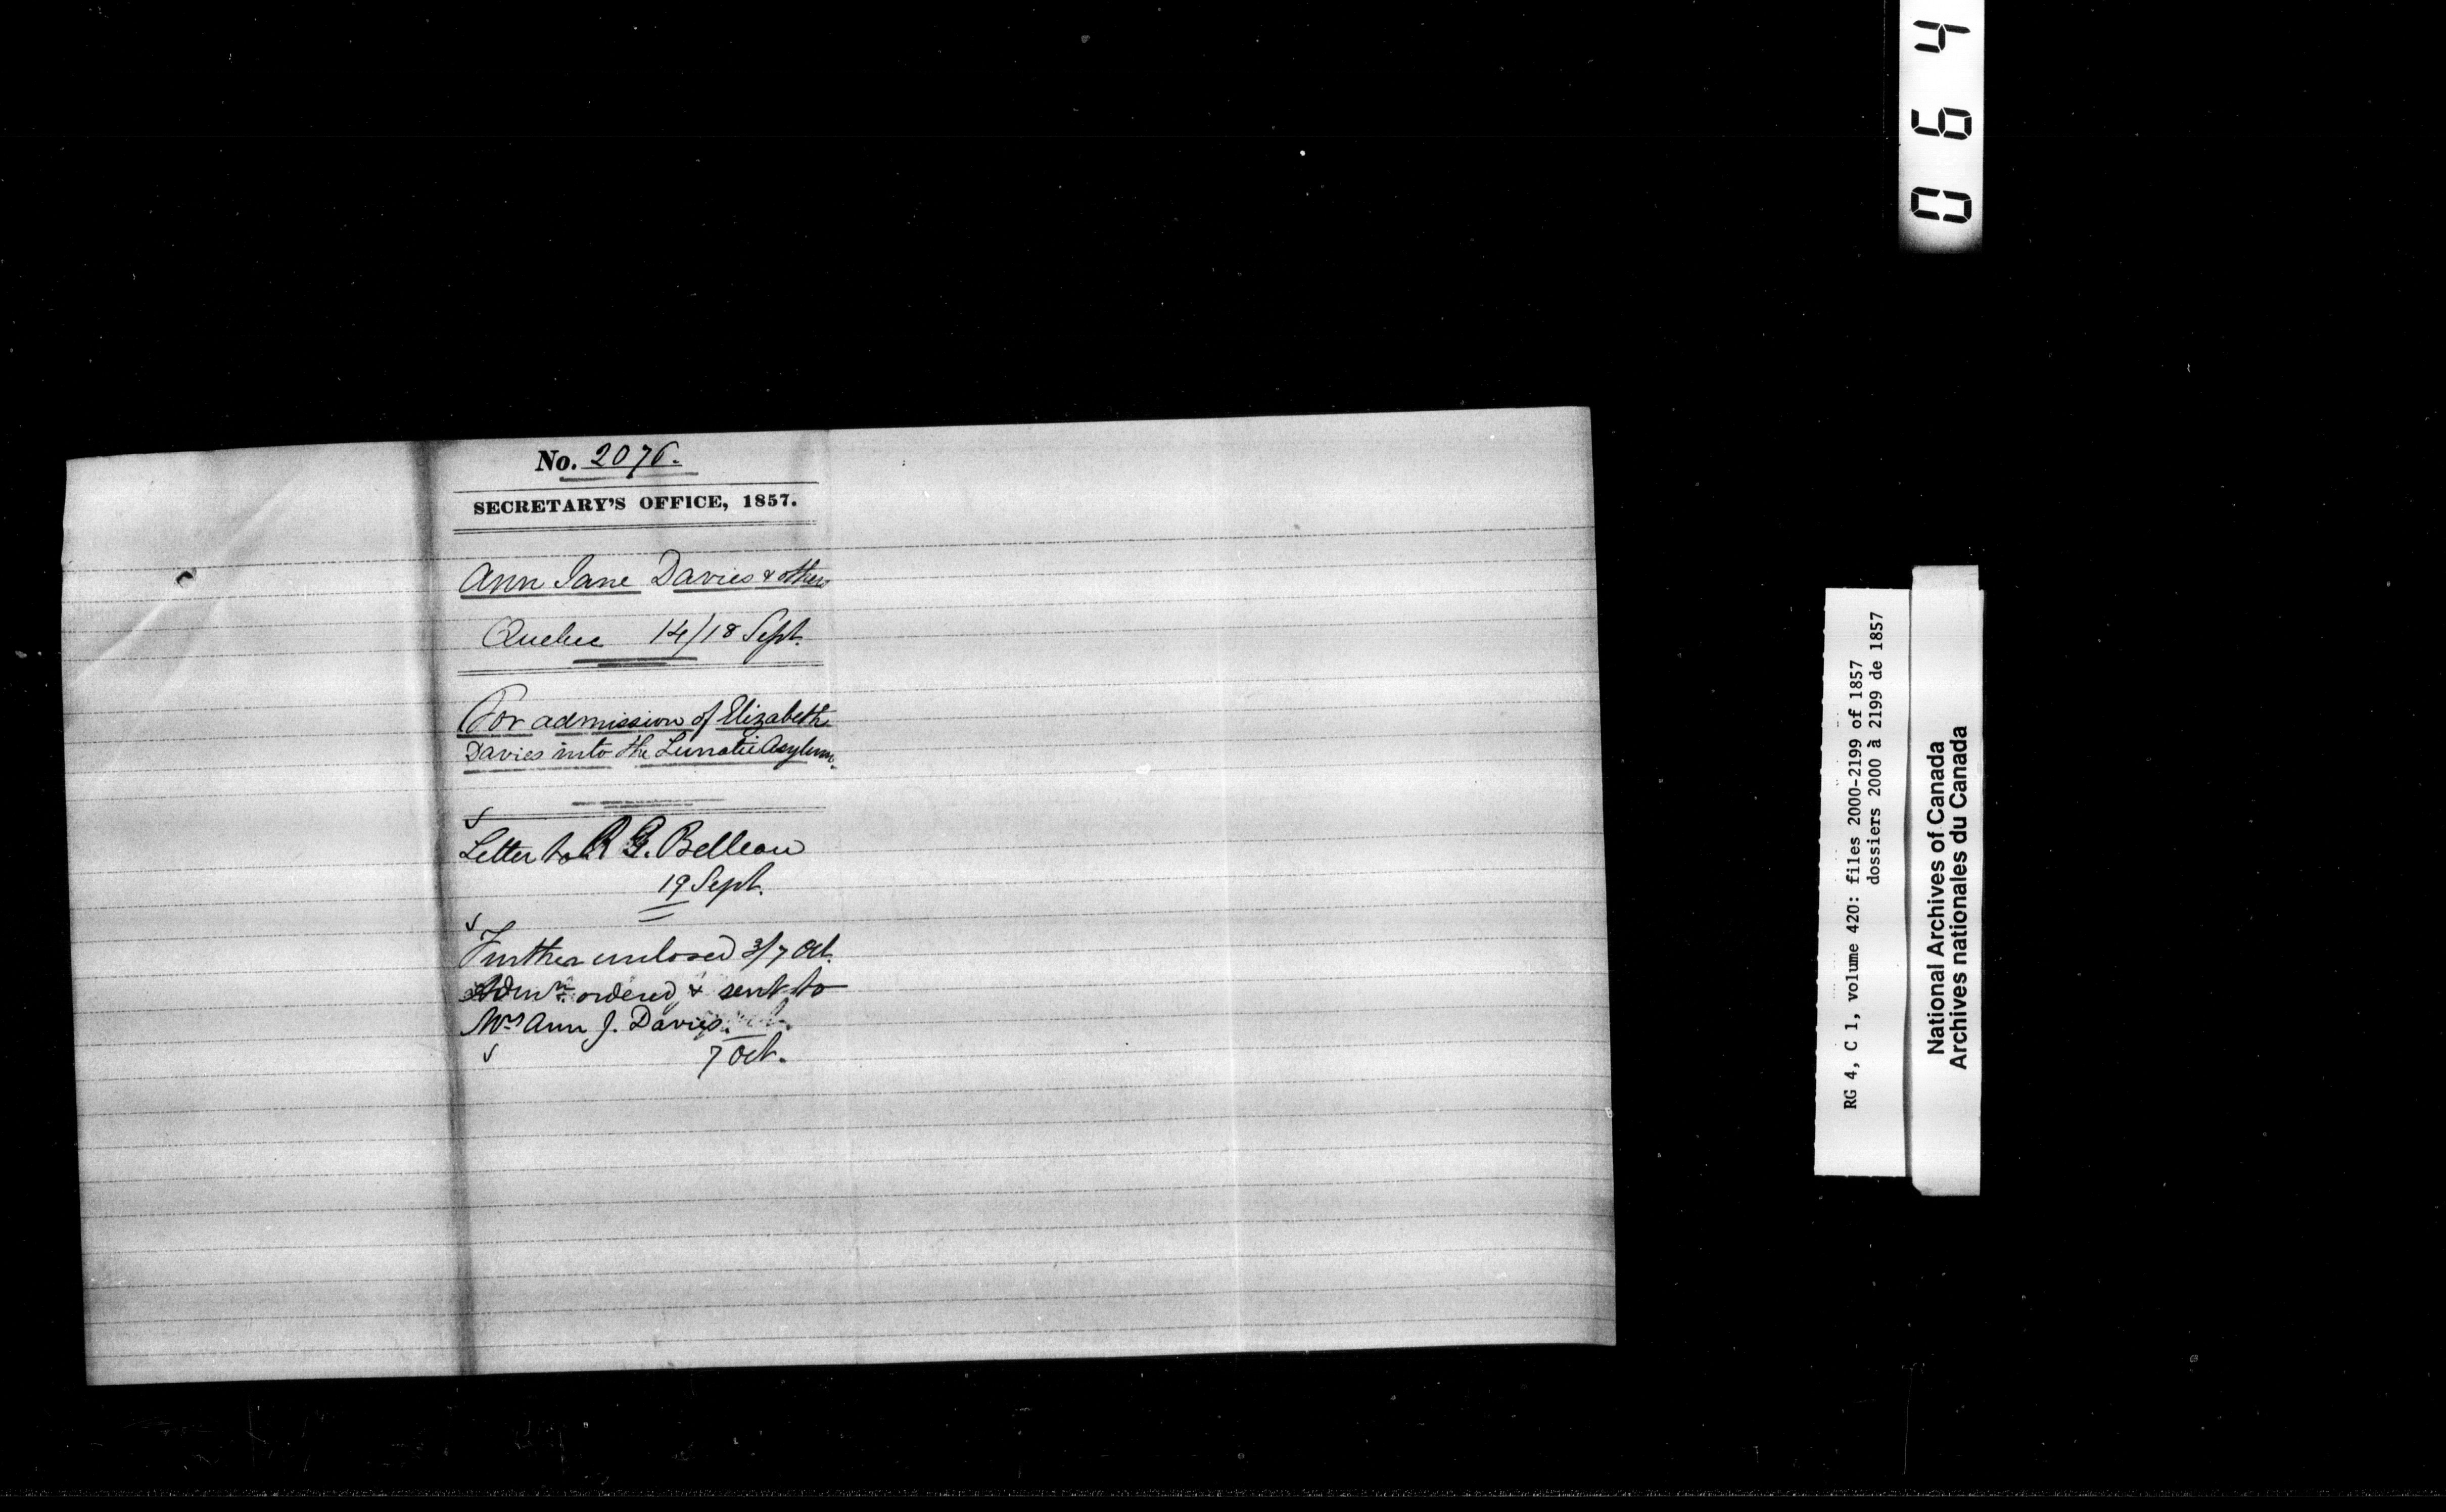 No. 2076.
SECRETARY'S OFFICE, 1857.
Ann Jane Davies & others
Quebec 14/18 Sept.
For admission of Elizabeth
Davies into the Lunatic Asylum.
Letter to R G. Belleau
19 Sept.
Further enclosed 3/7 Oct.
Admn. ordered & sent to
Mrs Ann J. Davies.
7 Oct.
0 6 4
RG 4, C 1, volume 420: files 2000-2199 of 1857
dossiers 2000 à 2199 de 1857
National Archives of Canada
Archives nationales du Canada